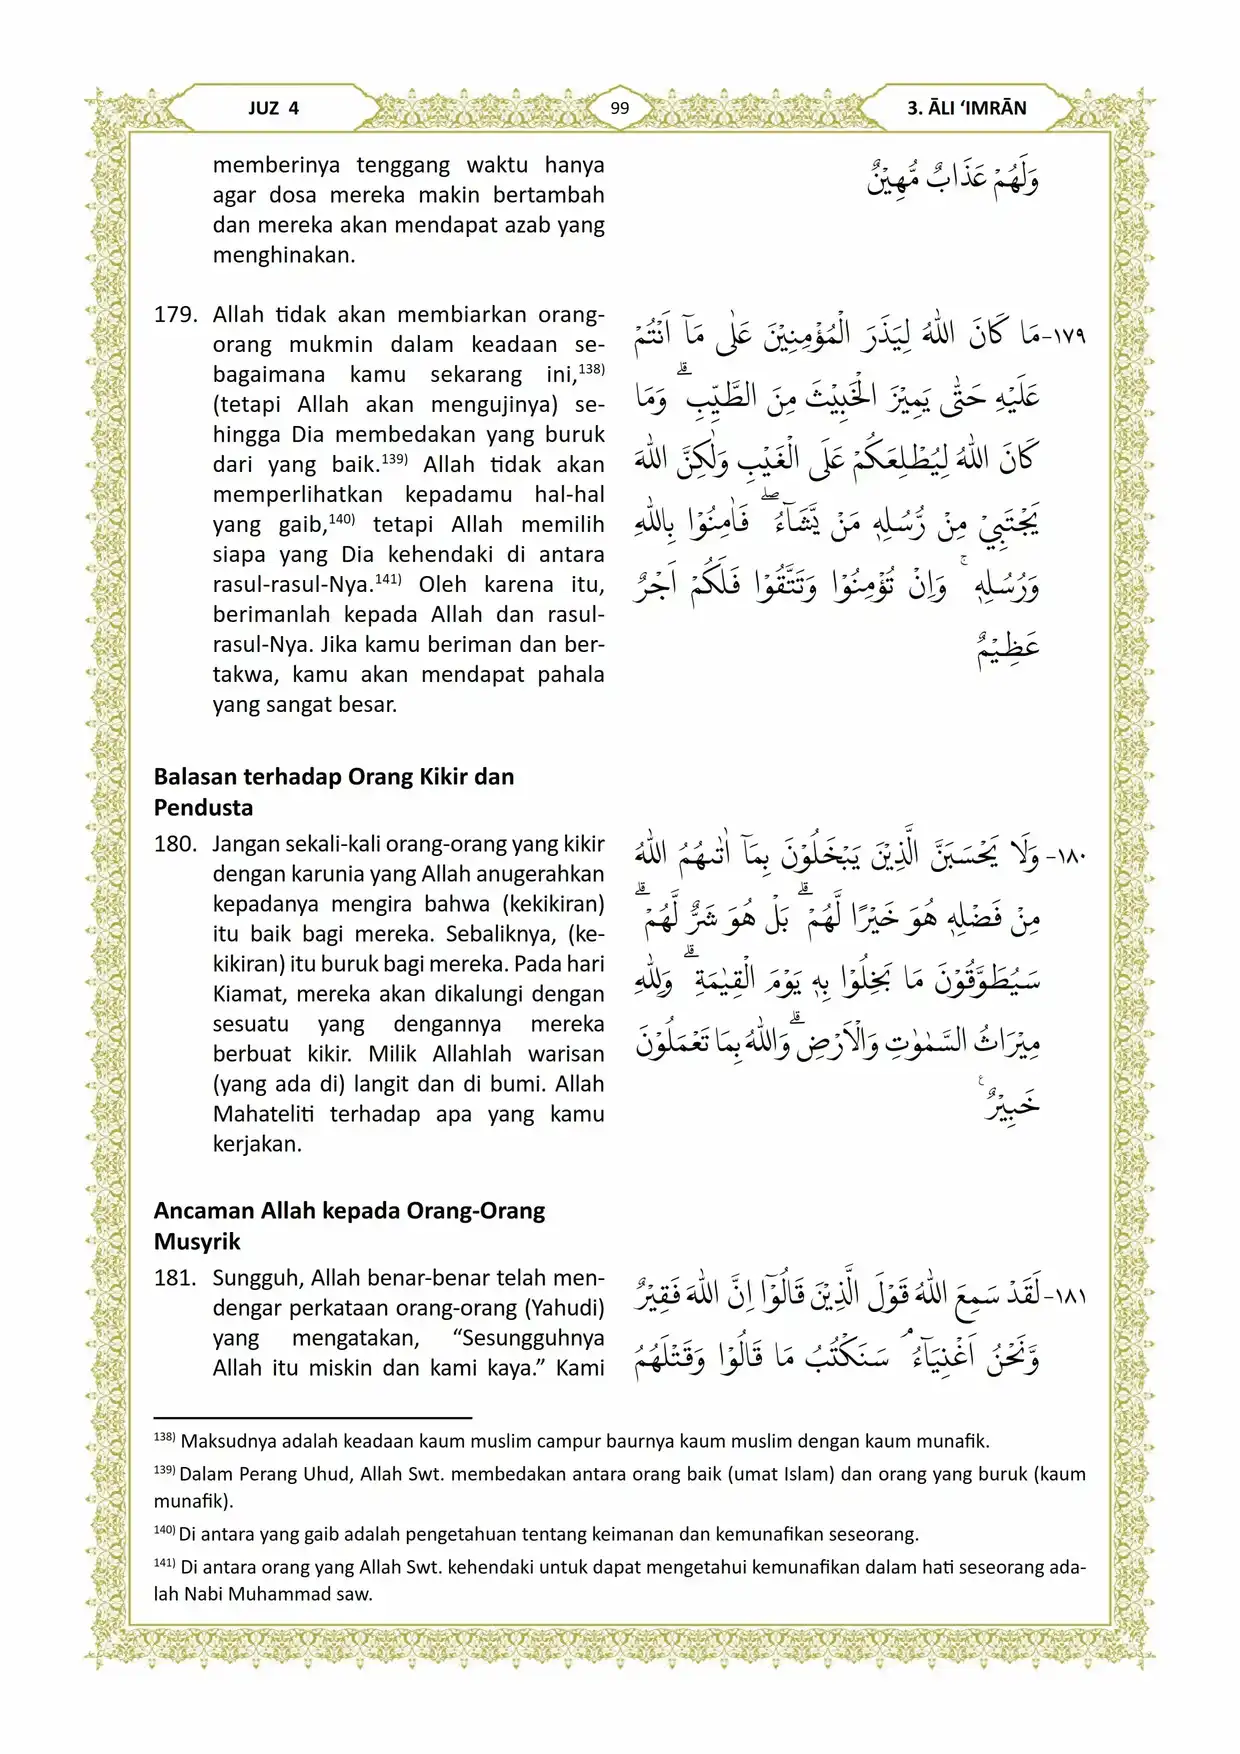 JUZ 4
99
3. ĀLI ‘IMRĀN
memberinya tenggang waktu hanya
agar dosa mereka makin bertambah
dan mereka akan mendapat azab yang
menghinakan.
وَلَهُمْ عَذَابٌ مُّهِيْنٌ
179. Allah tidak akan membiarkan orang-
orang mukmin dalam keadaan se-
bagaimana kamu sekarang ini,138)
(tetapi Allah akan mengujinya) se-
hingga Dia membedakan yang buruk
dari yang baik.139) Allah tidak akan
memperlihatkan kepadamu hal-hal
yang gaib,140) tetapi Allah memilih
siapa yang Dia kehendaki di antara
rasul-rasul-Nya.141) Oleh karena itu,
berimanlah kepada Allah dan rasul-
rasul-Nya. Jika kamu beriman dan ber-
takwa, kamu akan mendapat pahala
yang sangat besar.
١٧٩- مَا كَانَ اللّٰهُ لِيَذَرَ الْمُؤْمِنِيْنَ عَلٰى مَآ اَنْتُمْ
عَلَيْهِ حَتّٰى يَمِيْزَ الْخَبِيْثَ مِنَ الطَّيِّبِ ۗ وَمَا
كَانَ اللّٰهُ لِيُطْلِعَكُمْ عَلَى الْغَيْبِ وَلٰكِنَّ اللّٰهَ
يَجْتَبِيْ مِنْ رُّسُلِهٖ مَنْ يَّشَاۤءُ ۖ فَاٰمِنُوْا بِاللّٰهِ
وَرُسُلِهٖ ۚ وَاِنْ تُؤْمِنُوْا وَتَتَّقُوْا فَلَكُمْ اَجْرٌ
عَظِيْمٌ
Balasan terhadap Orang Kikir dan
Pendusta
180. Jangan sekali-kali orang-orang yang kikir
dengan karunia yang Allah anugerahkan
kepadanya mengira bahwa (kekikiran)
itu baik bagi mereka. Sebaliknya, (ke-
kikiran) itu buruk bagi mereka. Pada hari
Kiamat, mereka akan dikalungi dengan
sesuatu yang dengannya mereka
berbuat kikir. Milik Allahlah warisan
(yang ada di) langit dan di bumi. Allah
Mahateliti terhadap apa yang kamu
kerjakan.
١٨٠- وَلَا يَحْسَبَنَّ الَّذِيْنَ يَبْخَلُوْنَ بِمَآ اٰتٰىهُمُ اللّٰهُ
مِنْ فَضْلِهٖ هُوَ خَيْرًا لَّهُمْ ۗ بَلْ هُوَ شَرٌّ لَّهُمْ ۗ
سَيُطَوَّقُوْنَ مَا بَخِلُوْا بِهٖ يَوْمَ الْقِيٰمَةِ ۗ وَلِلّٰهِ
مِيْرَاثُ السَّمٰوٰتِ وَالْاَرْضِ ۗ وَاللّٰهُ بِمَا تَعْمَلُوْنَ
خَبِيْرٌ ࣖ
Ancaman Allah kepada Orang-Orang
Musyrik
181. Sungguh, Allah benar-benar telah men-
dengar perkataan orang-orang (Yahudi)
yang mengatakan, “Sesungguhnya
Allah itu miskin dan kami kaya.” Kami
١٨١- لَقَدْ سَمِعَ اللّٰهُ قَوْلَ الَّذِيْنَ قَالُوْٓا اِنَّ اللّٰهَ فَقِيْرٌ
وَّنَحْنُ اَغْنِيَاۤءُ ۘ سَنَكْتُبُ مَا قَالُوْا وَقَتْلَهُمُ
138) Maksudnya adalah keadaan kaum muslim campur baurnya kaum muslim dengan kaum munafik.
139) Dalam Perang Uhud, Allah Swt. membedakan antara orang baik (umat Islam) dan orang yang buruk (kaum
munafik).
140) Di antara yang gaib adalah pengetahuan tentang keimanan dan kemunafikan seseorang.
141) Di antara orang yang Allah Swt. kehendaki untuk dapat mengetahui kemunafikan dalam hati seseorang ada-
lah Nabi Muhammad saw.